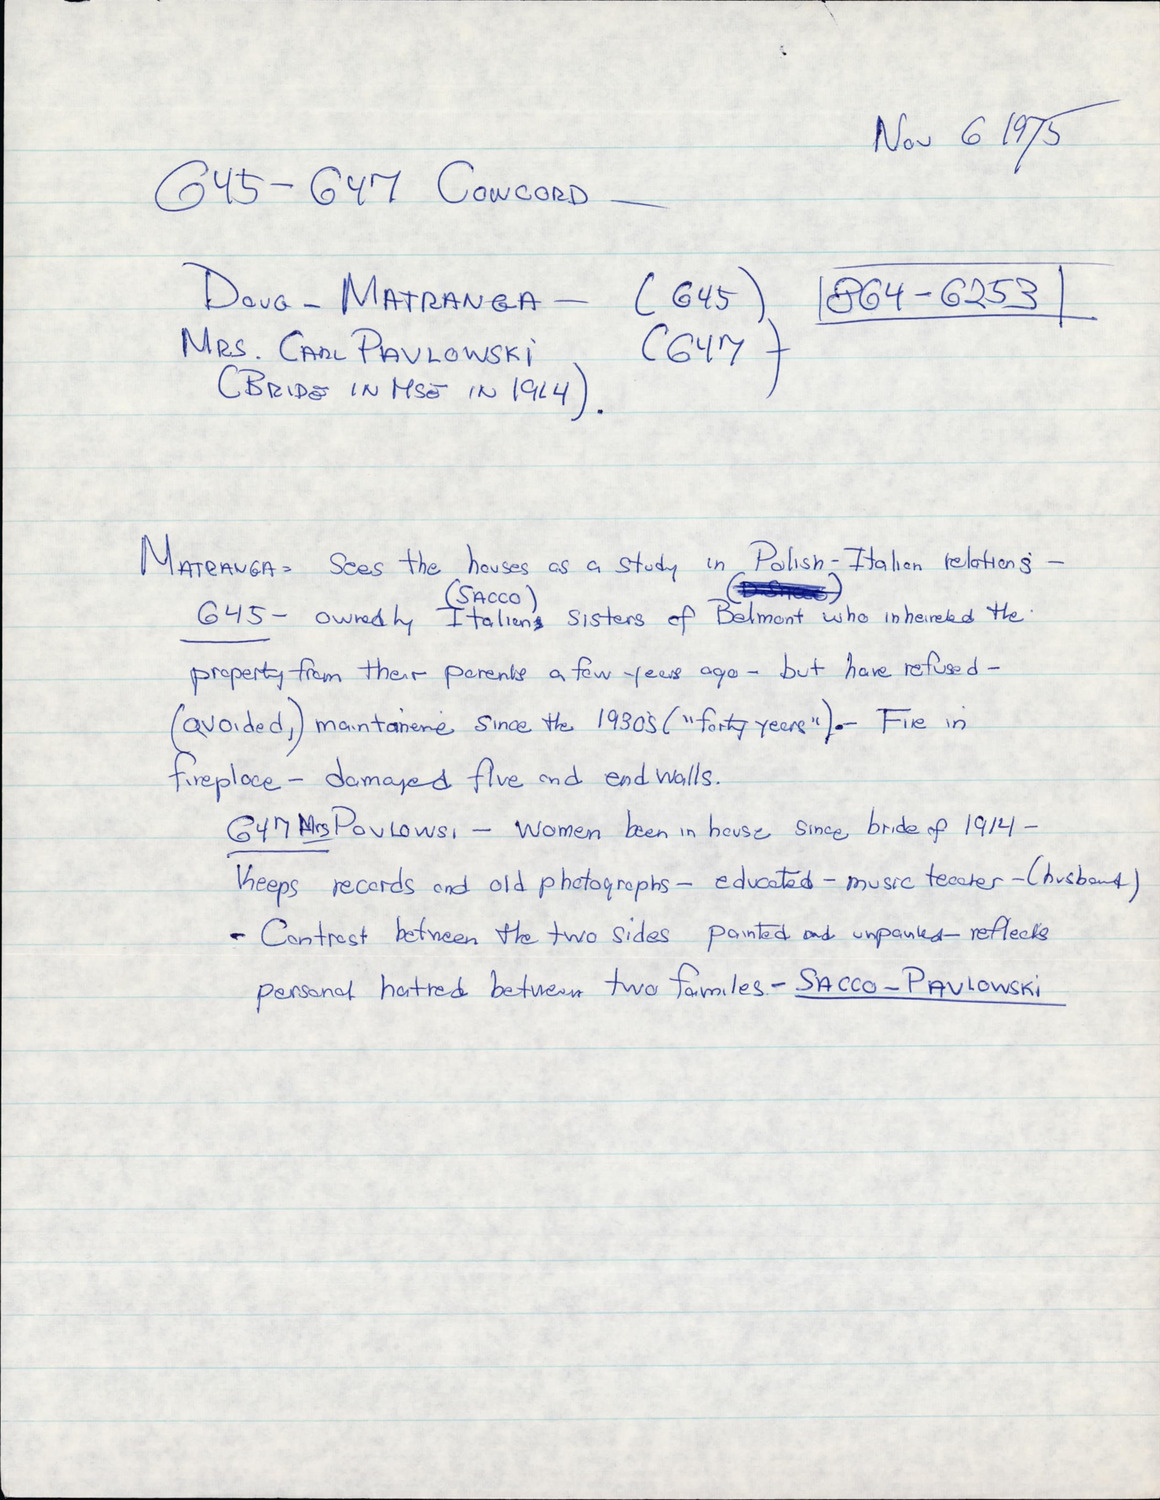 Nov 6 1975
645-647 CONCORD —
DOUG - MATRANGA — (645) 864-6253
MRS. CARL PAVLOWSKI (647)
(BRIDE IN HSE IN 1914).
MATRANGA = Sees the houses as a study in Polish-Italian relations —
(SACCO)
645 - owned by Italian sisters of Belmont who inhereted the
property from their parents a few years ago - but have refused -
(avoided,) maintainene since the 1930s ("forty years"). - Fire in
fireplace - damaged flue and end walls.
647 Mrs POVLOWSI — Women been in house since bride of 1914 -
Keeps records and old photographs - educated - music teacher - (husband)
- Contrast between the two sides painted and unpainted - reflects
personal hatred between two familes - SACCO - PAVLOWSKI